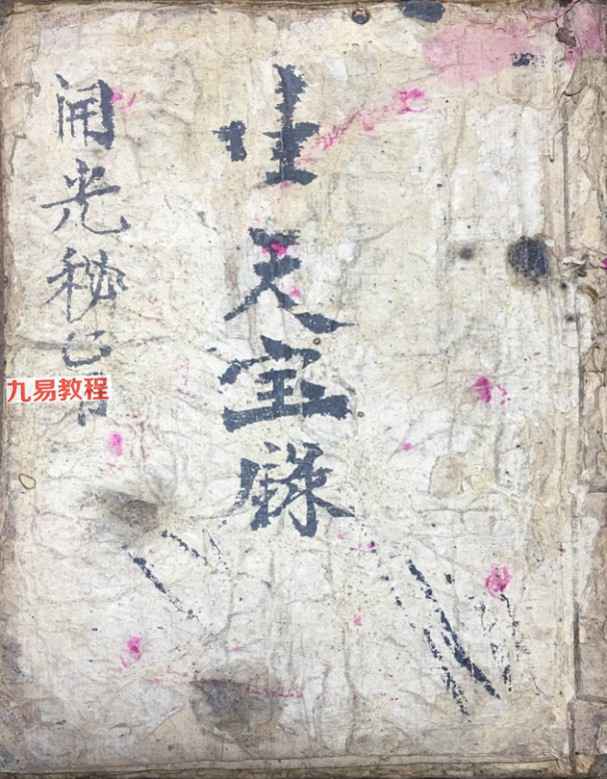 生天宝錄
開光秘旨
九易教程